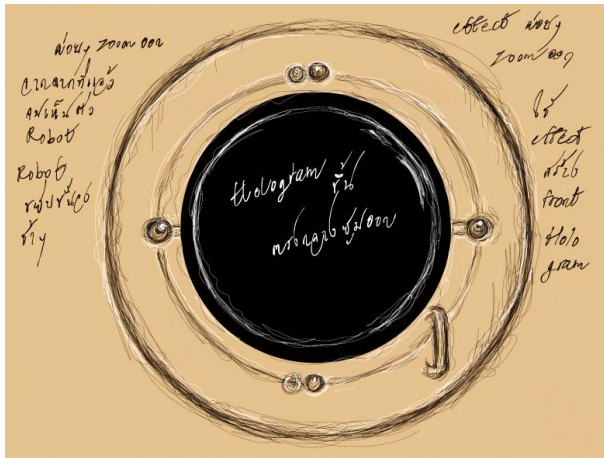 ค่อยๆ zoom ออก
จากฉากที่แล้ว
คนเห็นตัว
Robot
Robot
ขยับขึ้นลง
ช้าๆ
Hologram ขึ้น
ตรงกลางซูมออก
effect ค่อยๆ
zoom ออก
ใช้
effect
สร้าง
front
Holo
gram